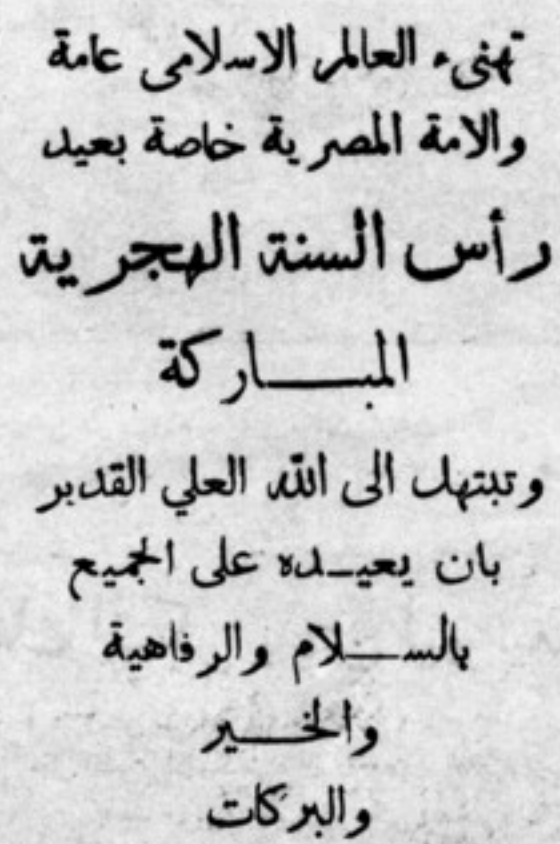 تهنىء العالم الاسلامى عامة
والامة المصرية خاصة بعيد
رأس السنة الهجرية
المباركة
وتبتهل الى الله العلي القدير
بان يعيده على الجميع
بالسلام والرفاهية
والخير
والبركات